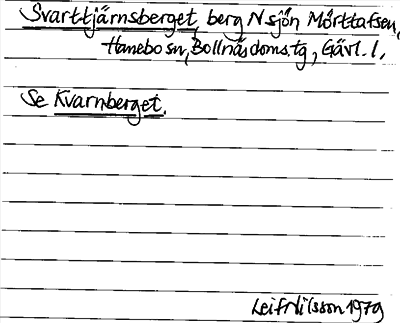 Svarttjärnsberget, berg N sjön Mörttafsen,
Hanebo sn, Bollnäs doms.tg, Gävl. l.
Se Kvarnberget.
Leif Nilsson 1979